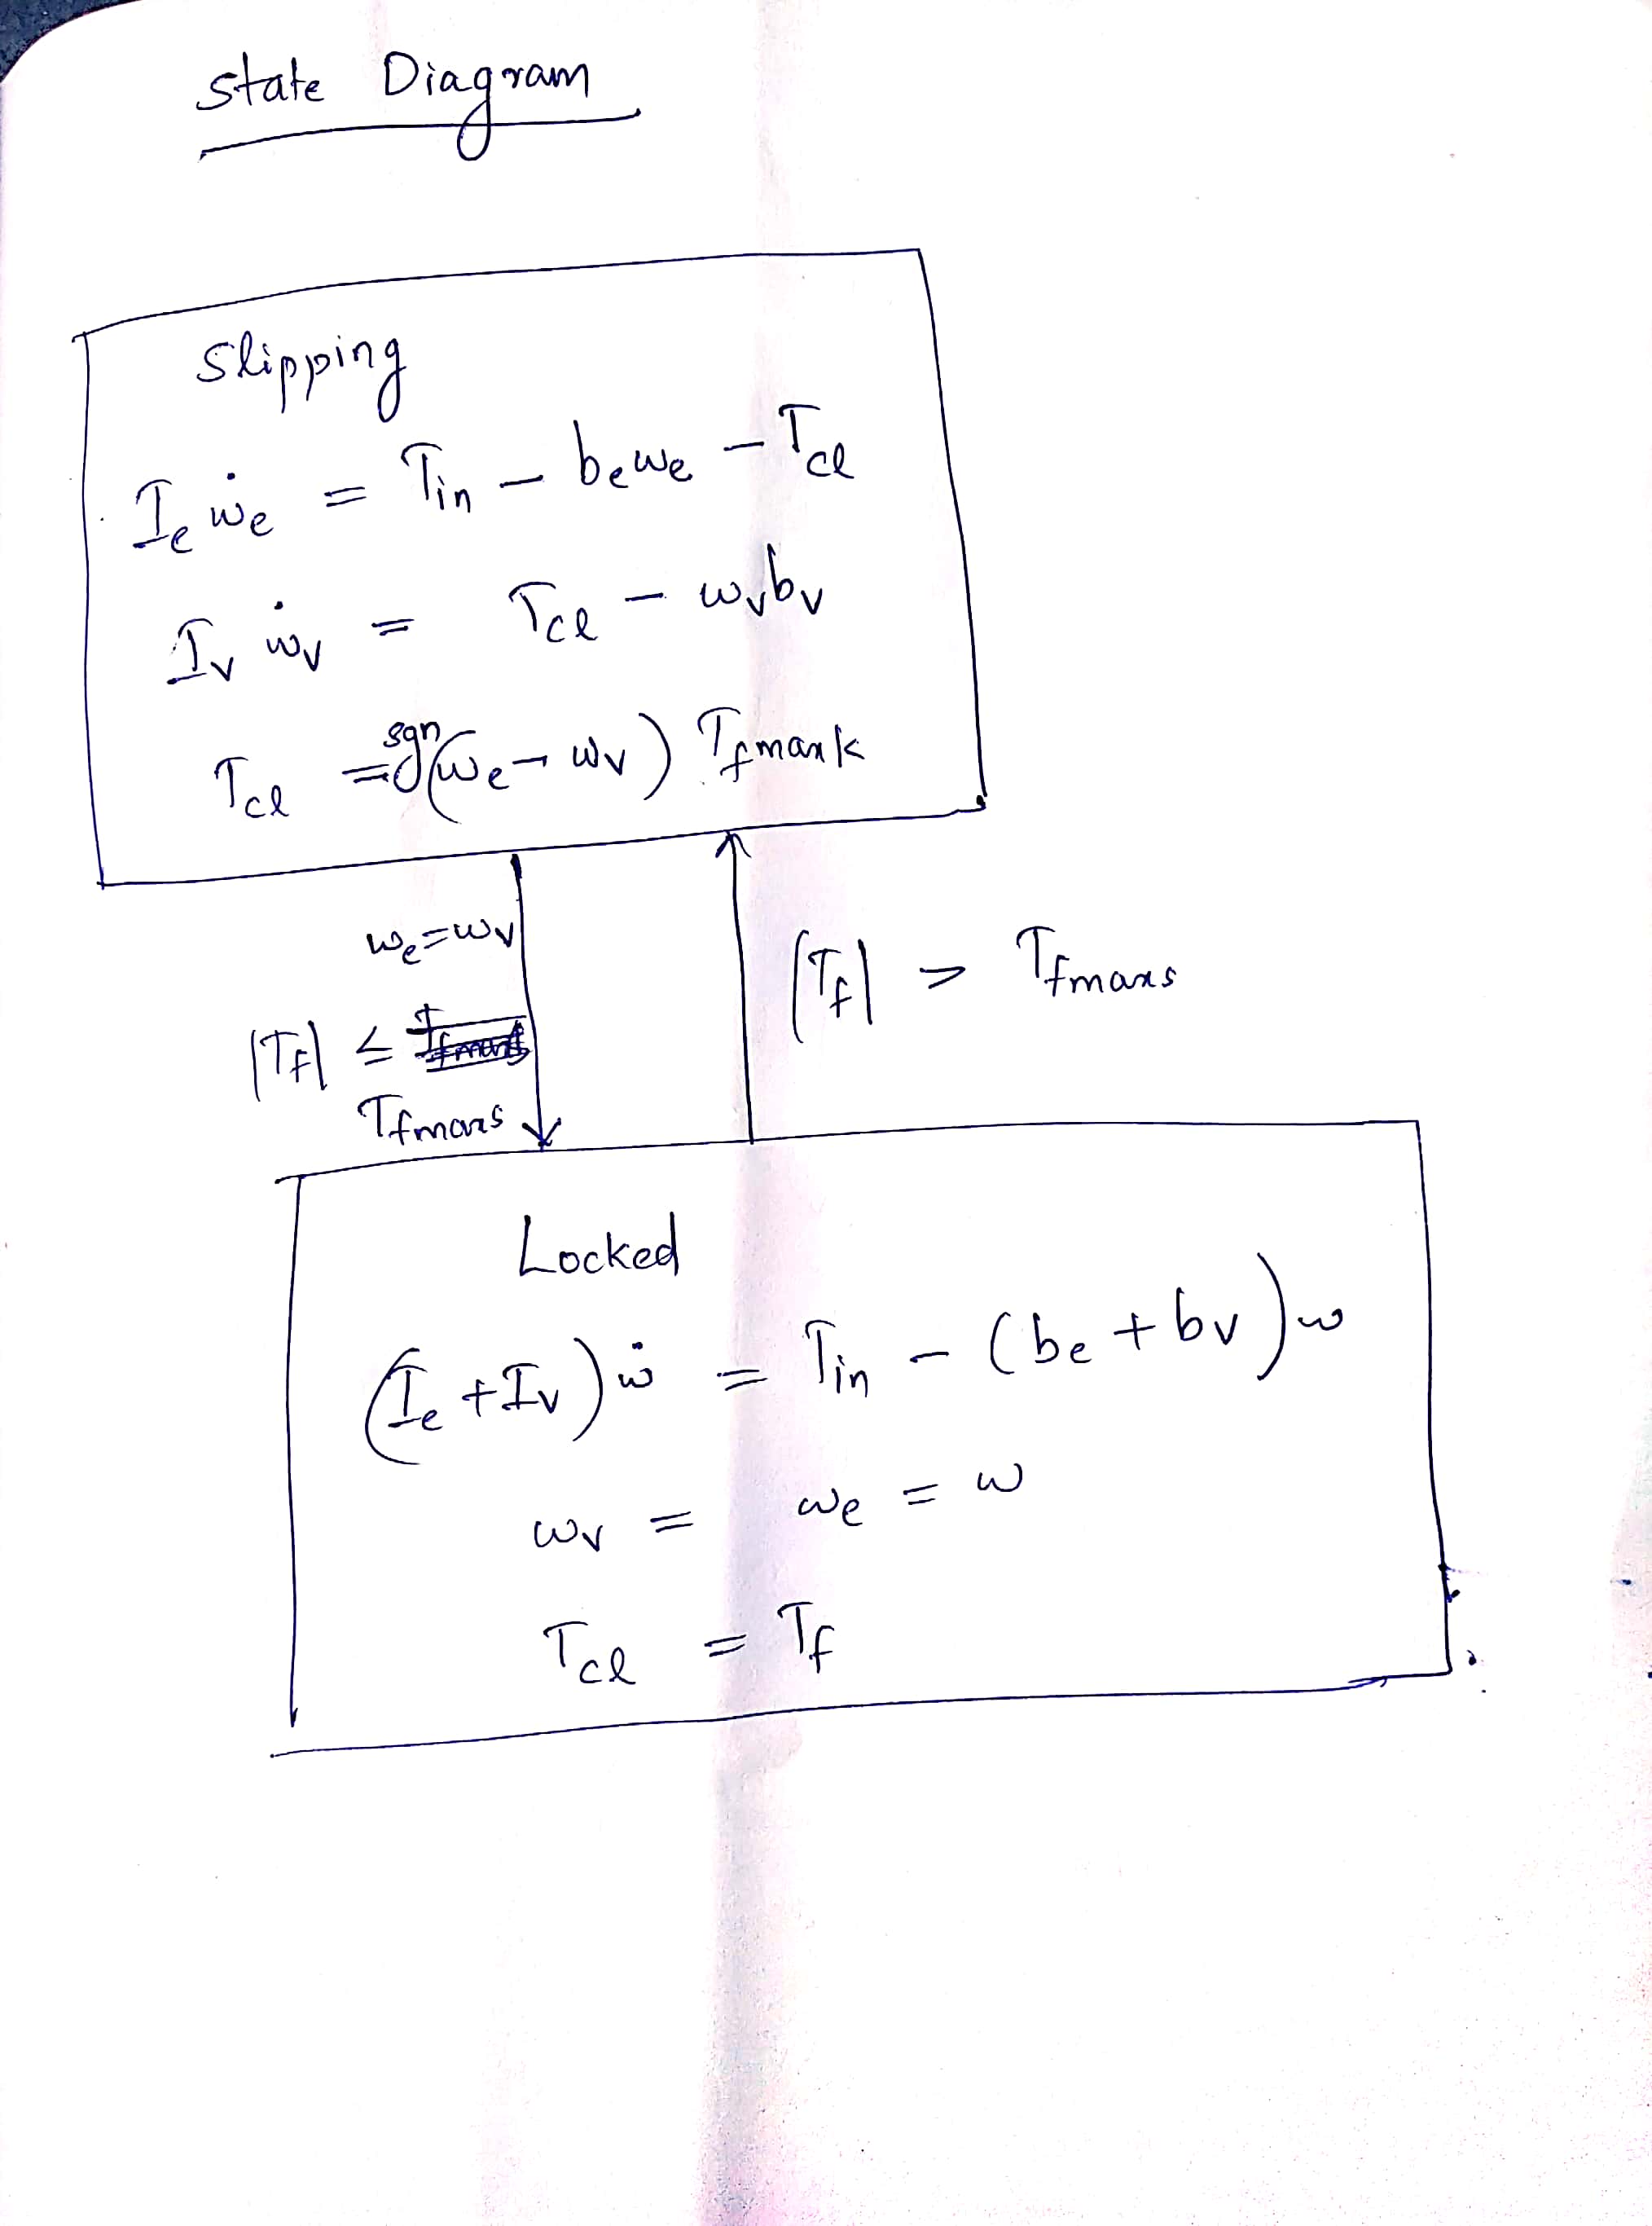 State Diagram
Slipping
I_e ẇ_e = T_in - b_e w_e - T_cl
I_v ẇ_v = T_cl - w_v b_v
T_cl = sgn(w_e - w_v) T_fmaxk
w_e = w_v
|T_f| ≤
T_fmaxs
|T_f| > T_fmaxs
Locked
(I_e + I_v) ẇ = T_in - (b_e + b_v) w
w_v = w_e = w
T_cl = T_f